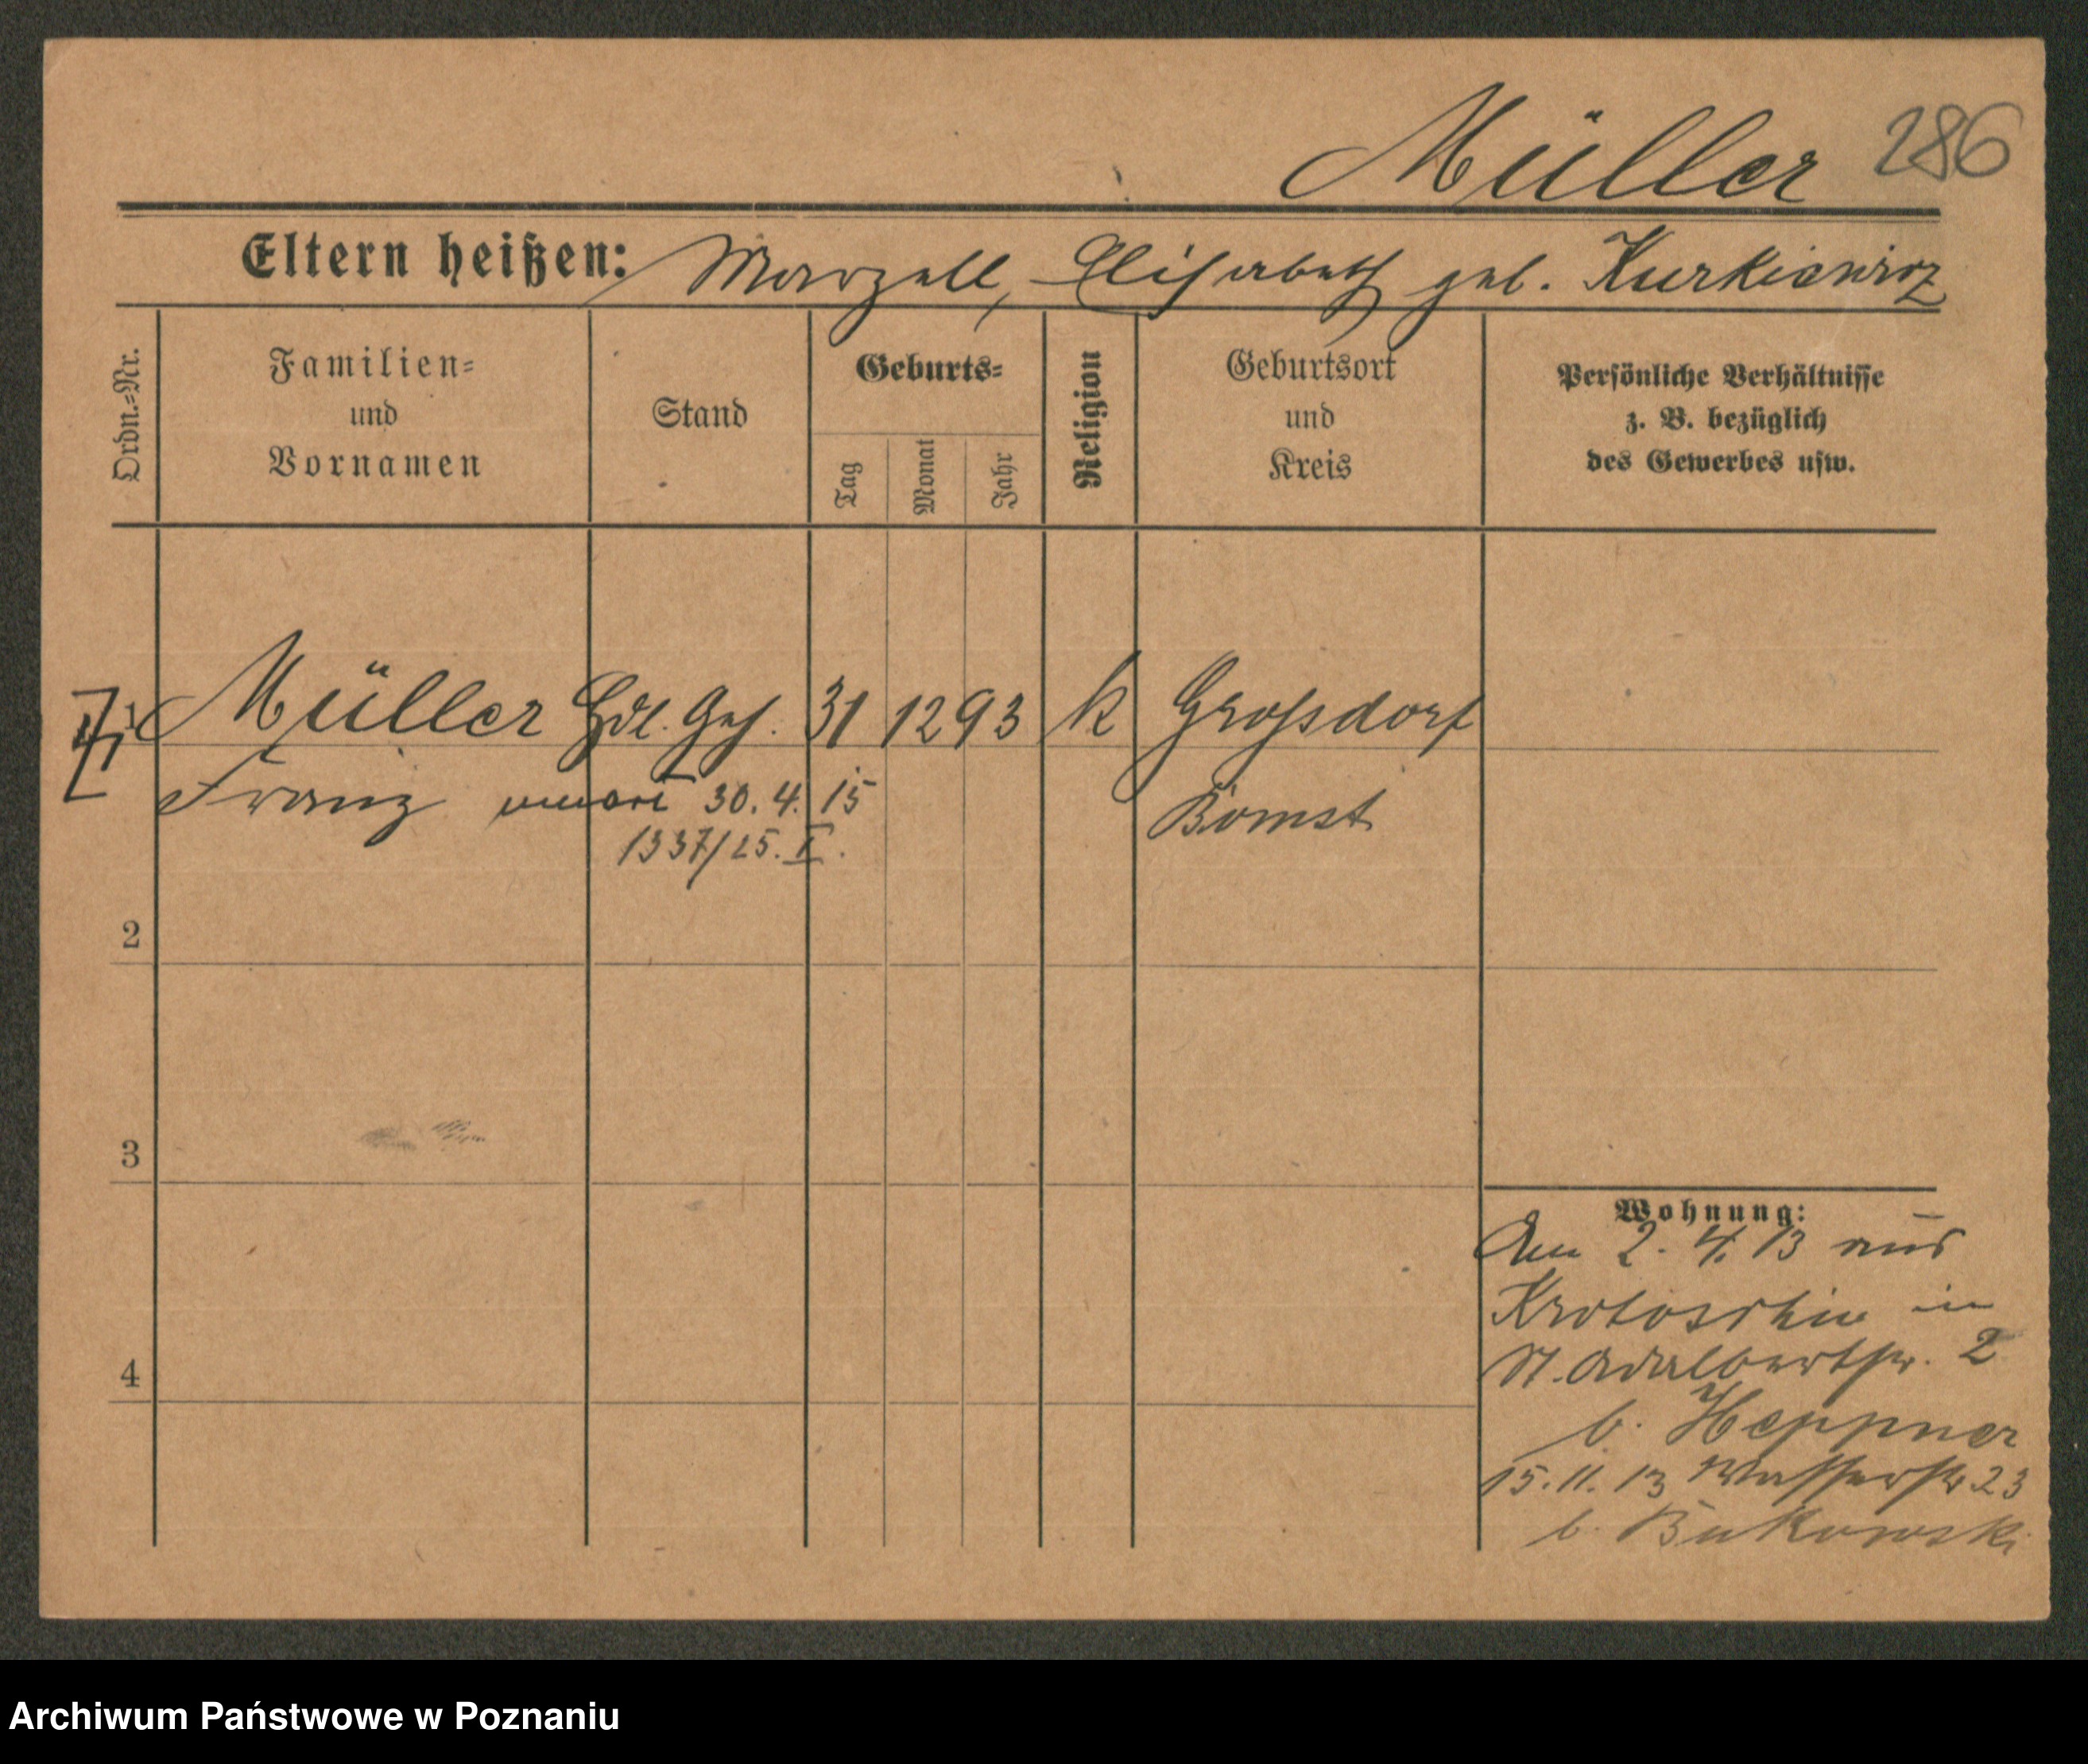 Müller 286
Eltern heißen: Marzell, Elisabeth geb. Kurkiewicz
Ordn.=Nr.
Familien=
und
Vornamen
Stand
Geburts=
Tag
Monat
Jahr
Religion
Geburtsort
und
Kreis
Persönliche Verhältnisse
z. B. bezüglich
des Gewerbes usw.
1 Müller Hdl. Geh. 31 12 93 k Grossdorf
Franz 30. 4. 15 Bomst
1337/15. I.
2
3
4
Wohnung:
Am 2. 4. 13 aus
Krotoschin in
St. Adalbertstr. 2
b. Heppner
15. 11. 13 Wasserstr 23
b. Bukowski
Archiwum Państwowe w Poznaniu